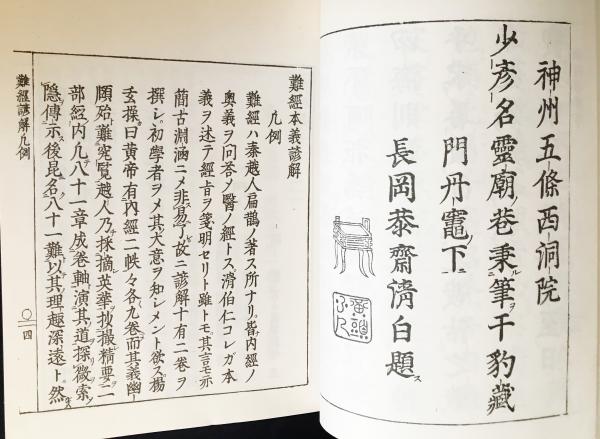 神州五條西洞院
少彦名靈廟ノ巷秉筆ヲ于豹藏
門丹竈ノ下ニ
長岡恭齋清白題ス
難經本義諺解
凡例
難經ハ秦越人扁鵲ノ著ス所ナリ皆内經ノ
奥義ヲ問答ノ醫ノ經トス滑伯仁コレガ本
義ヲ述テ經旨ヲ箋明セリト雖トモ其言モ亦
簡古淵涵ニメ非易了故ニ諺解十有二卷ヲ
撰シ初學者ヲメ其大意ヲ知シメント欲ス揚
玄操曰黄帝有内經二帙々各九卷而其義幽
頤殆難究覧越人乃採摘英華抄撮精要二
部經内凡八十一章成卷軸演其道探微索
隠傳示後昆名八十一難以其理趣深遠ト然
難經諺解凡例
〇四